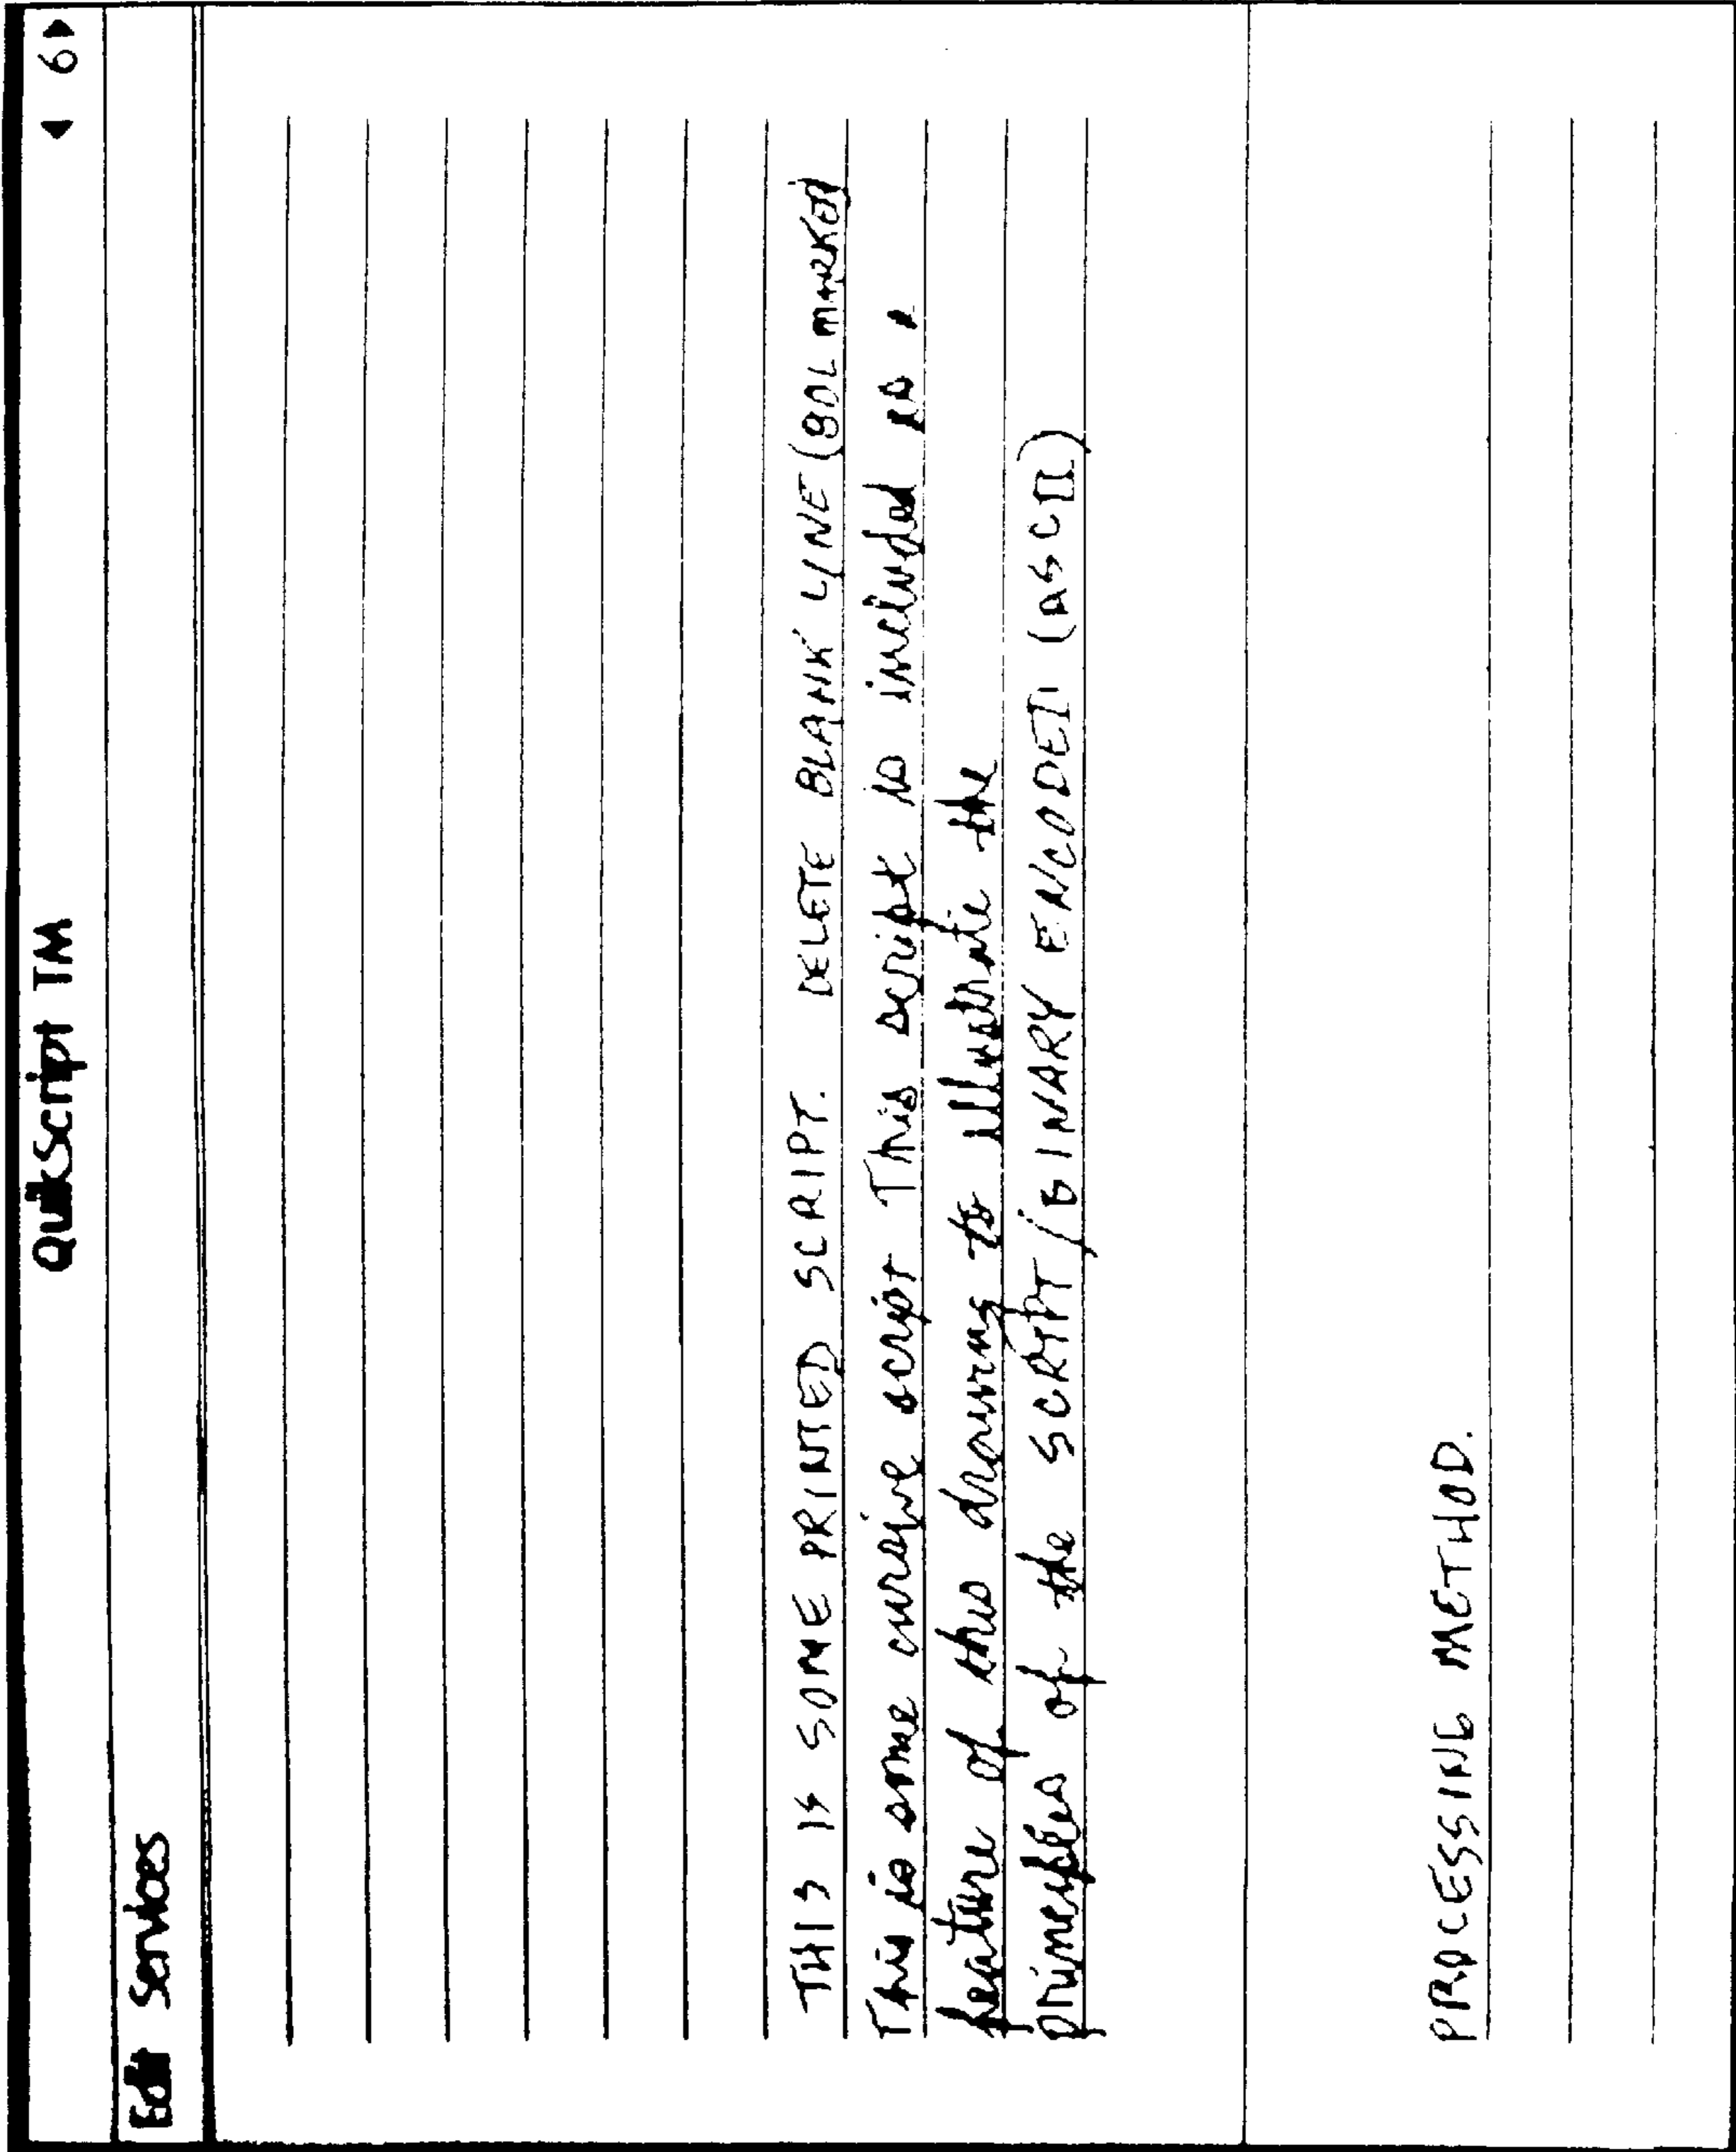 QuikScript TM ◀ 6 ▶
Edit Services
THIS IS SOME PRINTED SCRIPT. DELETE BLANK LINE (BOL marked
This is some cursive script This script is included as
feature of this drawing to illustrate the
principles of the SCRIPT/BINARY ENCODED (ASCII)
PROCESSING METHOD.